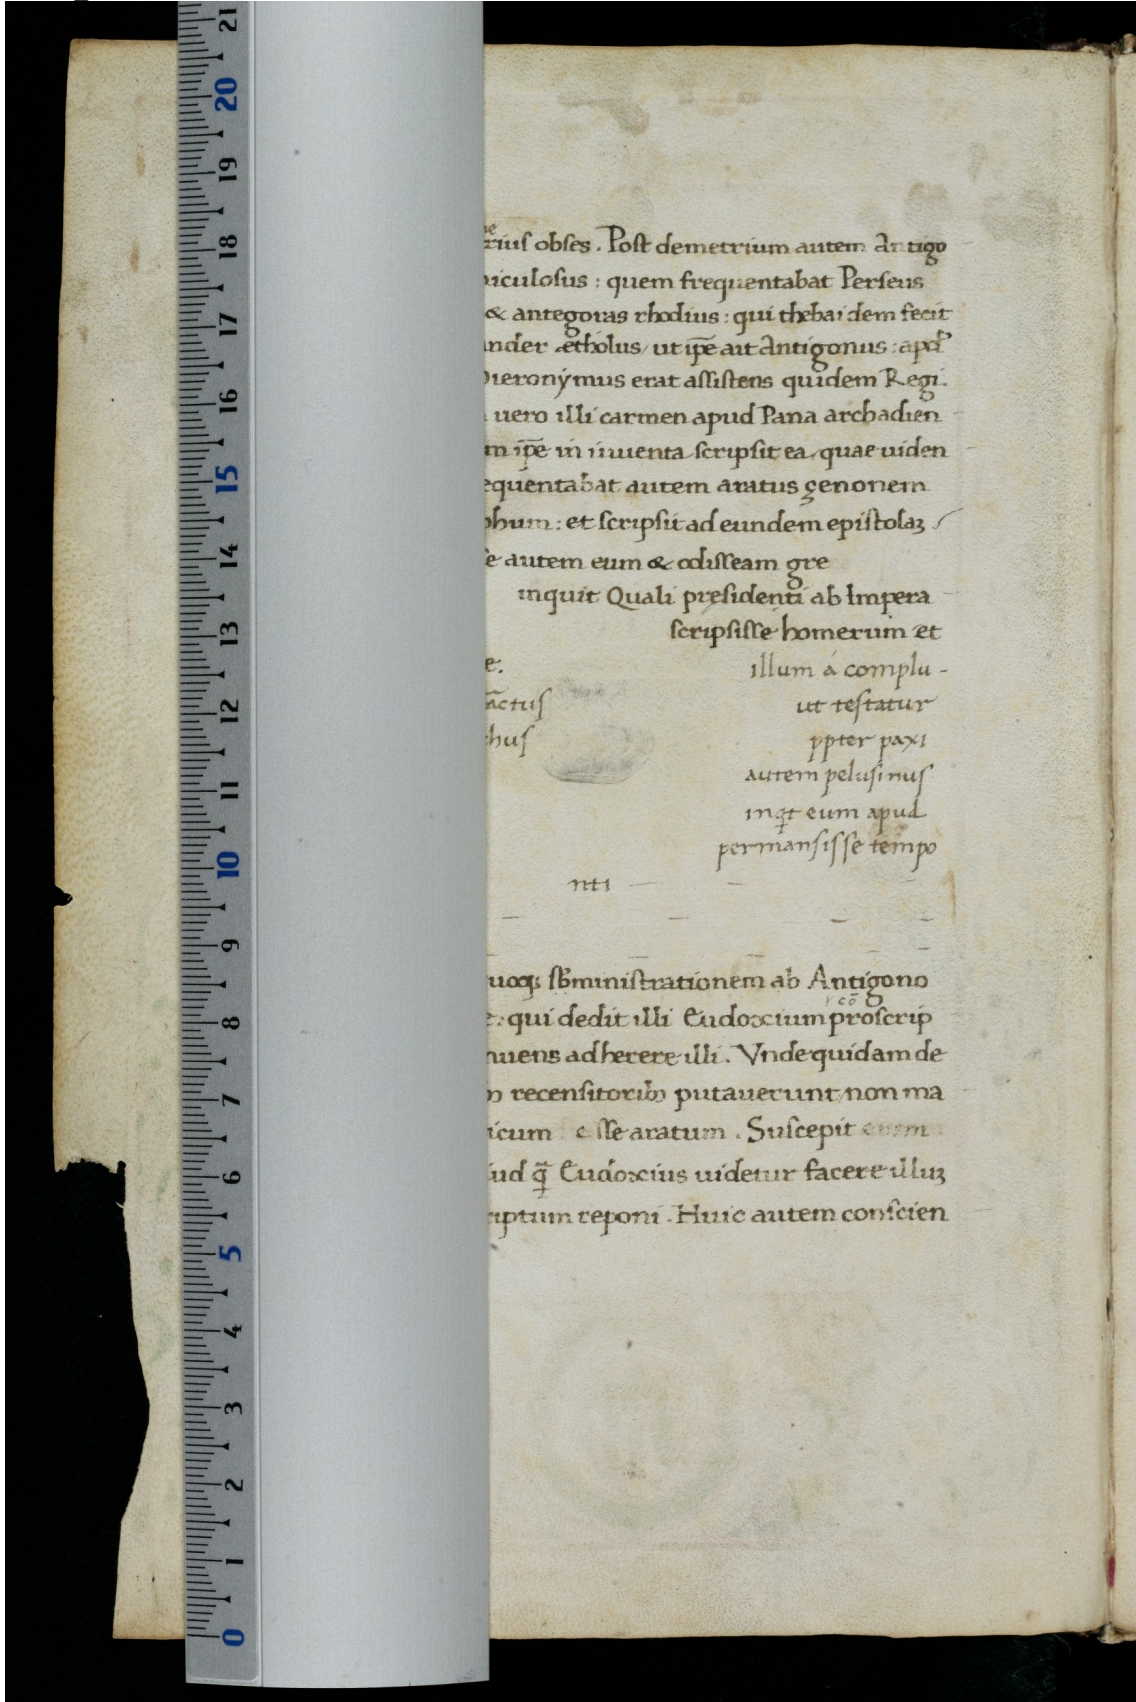 rius obses . Post demetrium autem Antigo
niculosus : quem frequentabat Perseus
& antegoras rhodius : qui thebaidem fecit
ander ætholus / ut ip̄e ait Antigonus : apd̓
hieronýmus erat assistens quidem Regi.
uero illi carmen apud Pana archadien
m ip̄e in iuuenta scripsit ea, quae uiden
equentabat autem aratus çenonem
phum : et scripsit ad eundem epistolaꝫ /
se autem eum & odisseam gre
inquit Quali presidenti ab Impera
scripsisse homerum et
e. illum á complu -
āctus ut testatur
chus ꝓpter paxi
autem pelusinus
inqt eum apud
permansisse tempo
nti
uoqꝫ sƀministrationem ab Antigono
e : qui dedit illi Eudoxium proscrip
nuens adherere illi . Vnde quidam de
recensitoribꝫ putauerunt non ma
icum esse aratum . Suscepit enim
iud q̄ Eudoxius uidetur facere illuꝫ
riptum reponi . Huic autem conscien
21
20
19
18
17
16
15
14
13
12
11
10
9
8
7
6
5
4
3
2
1
0